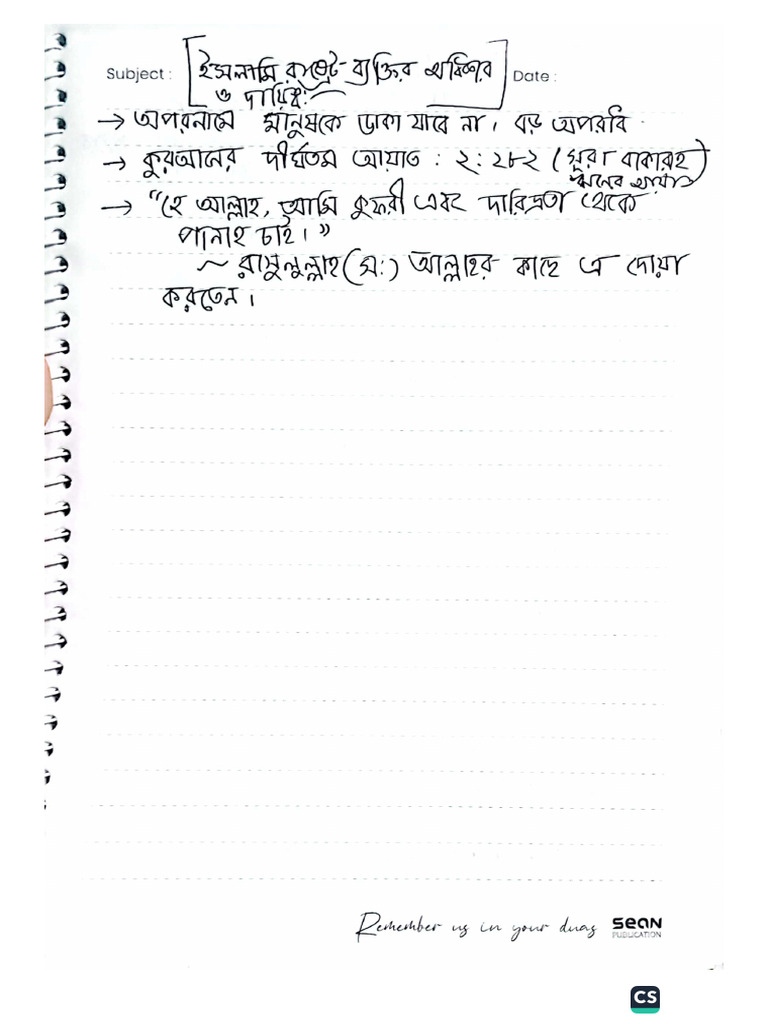 Subject : [ইসলামি রাষ্ট্রে ব্যক্তির অধিকার Date :
ও দায়িত্ব:]
→ অপরনামে মানুষকে ডাকা যাবে না। বড় অপরাধ
→ কুরআনের দীর্ঘতম আয়াত : ২:২৮২ (সূরা বাকারাহ)
ঋনের আয়াত
→ "হে আল্লাহ, আমি কুফরী এবং দারিদ্রতা থেকে
পানাহ চাই।"
~ রাসুলুল্লাহ (স:) আল্লাহর কাছে এ দোয়া
করতেন।
Remember us in your duas sean
PUBLICATION
CS